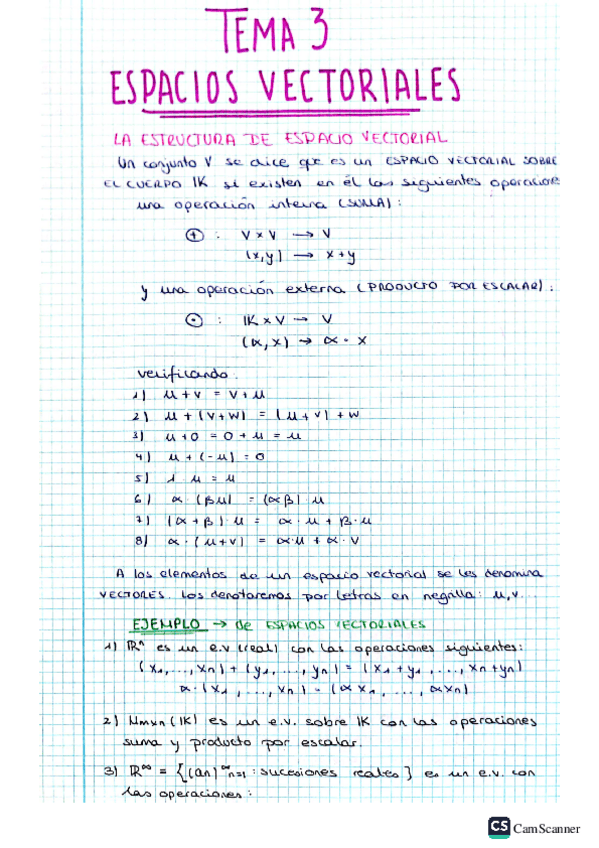 TEMA 3
ESPACIOS VECTORIALES
LA ESTRUCTURA DE ESPACIO VECTORIAL
Un conjunto V se dice que es un ESPACIO VECTORIAL SOBRE
EL CUERPO IK si existen en él las siguientes operacione
una operación interna (SUMA):
⊕ : V × V → V
(x,y) → x+y
y una operación externa (PRODUCTO POR ESCALAR):
⊙ : IK × V → V
(α, x) → α · x
verificando.
1) u + v = v + u
2) u + (v + w) = (u + v) + w
3) u + 0 = 0 + u = u
4) u + (-u) = 0
5) 1 u = u
6) α · (βu) = (αβ) u
7) (α + β) · u = α · u + β · u
8) α · (u + v) = α·u + α · v
A los elementos de un espacio vectorial se les denomina
VECTORES. Los denotaremos por letras en negrilla: u, v...
EJEMPLO → de ESPACIOS VECTORIALES
1) ℝⁿ es un e.v (real) con las operaciones siguientes:
(x₁, ..., xn) + (y₁, ..., yn) = (x₁ + y₁, ..., xn + yn)
α · (x₁, ..., xn) = (αx₁, ..., αxn)
2) Mmxn (IK) es un e.v. sobre IK con las operaciones
suma y producto por escalar.
3) ℝ^∞ = {(an)^∞ n=1 : sucesiones reales} es un e.v. con
las operaciones:
CS CamScanner